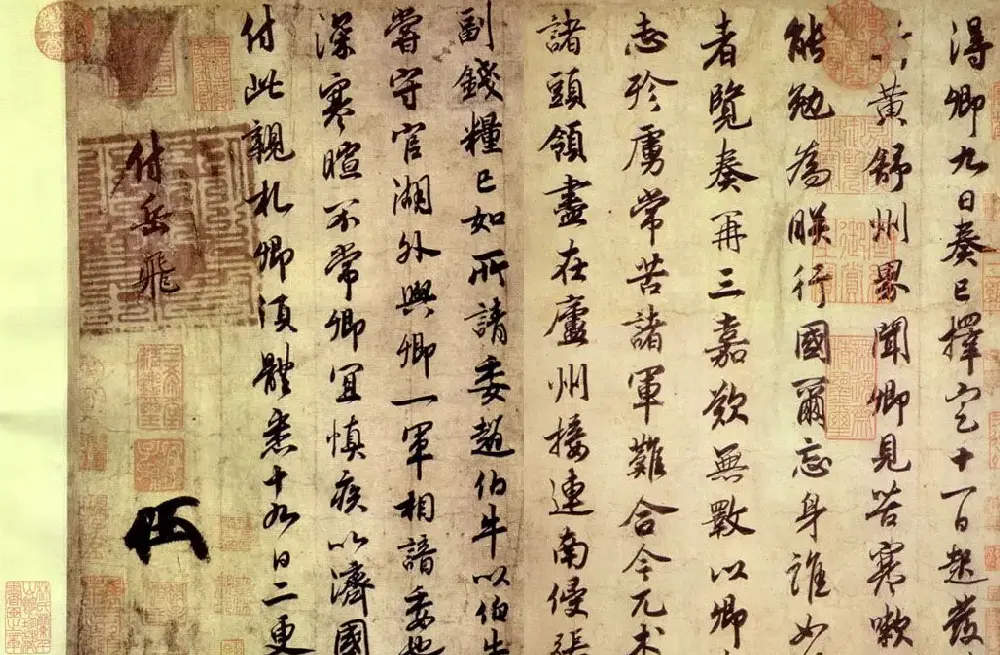 得卿九日奏已擇定十一日起發
黄舒州界聞卿見苦寒嗽
能勉為朕行國爾忘身誰如
者覽奏再三嘉歎無斁以卿
志殄虜常苦諸軍難合今兀术
諸頭領盡在廬州接連南侵張
副錢糧已如所請委趙伯牛以伯牛
嘗守官湖外與卿一軍相諳委也
深寒暄不常卿宜慎疾以濟國
付此親札卿須體悉十九日二更
付岳飛